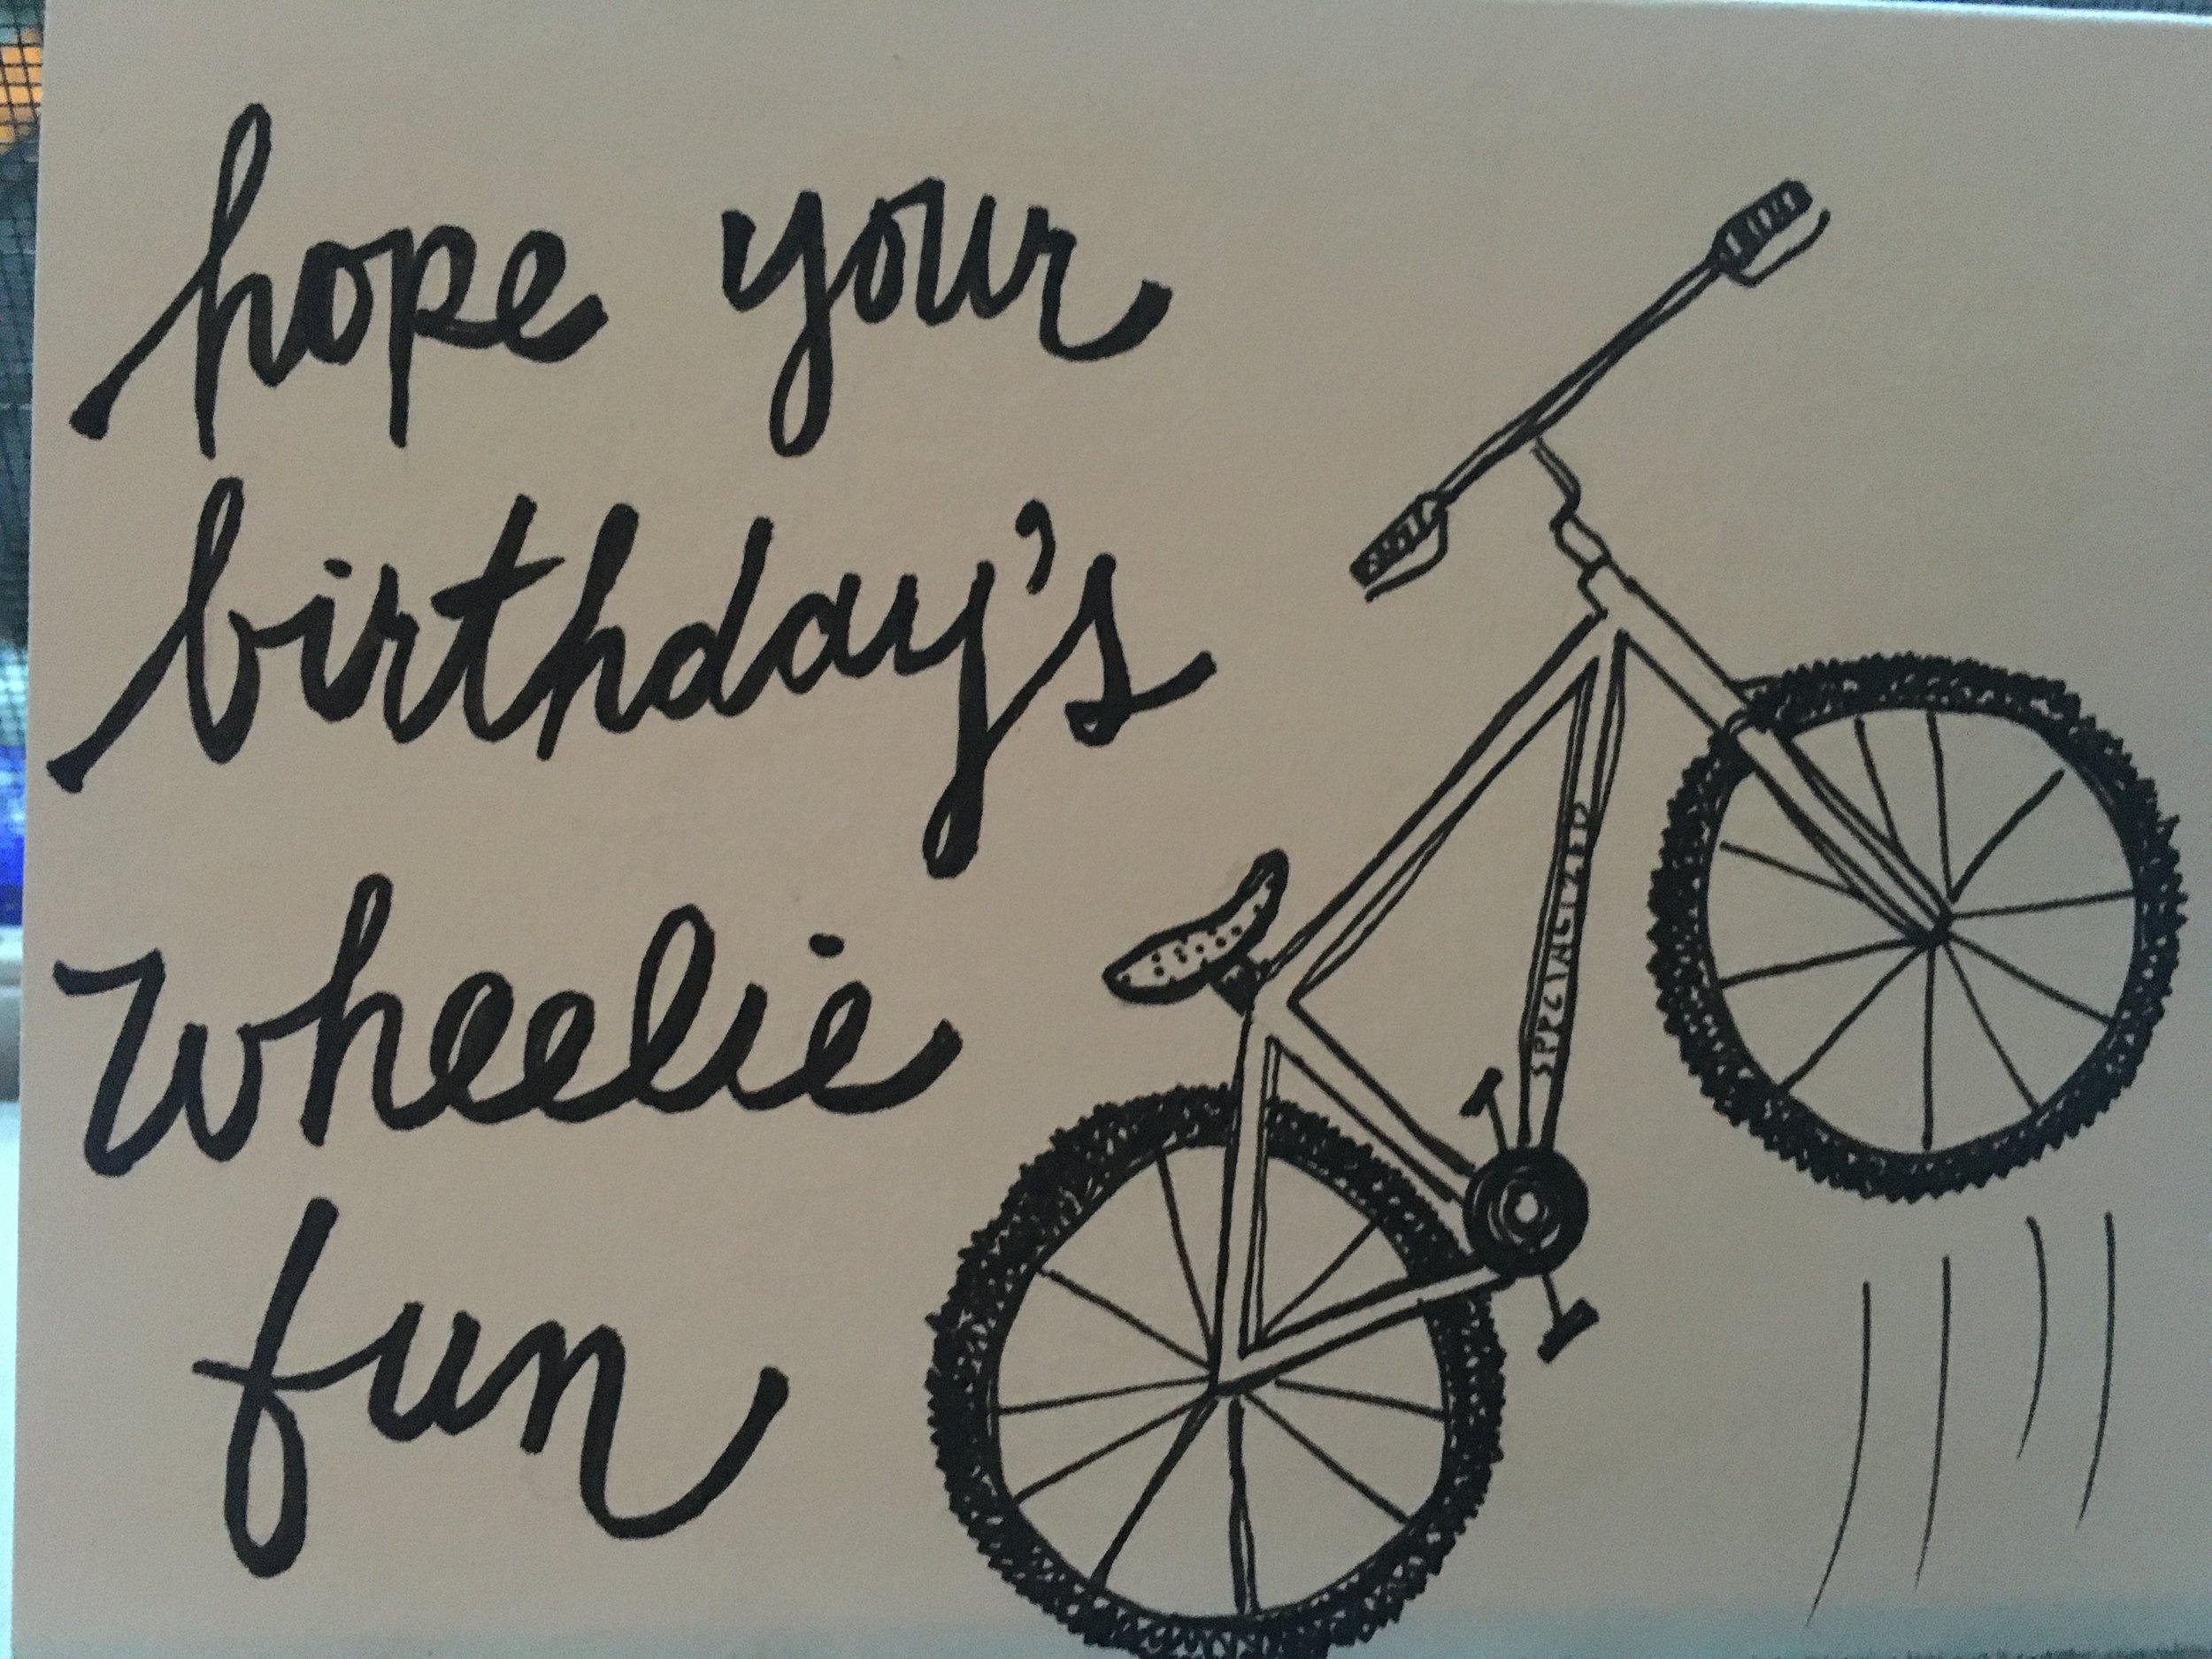 hope your
birthday's
wheelie
fun
SPECIALIZED